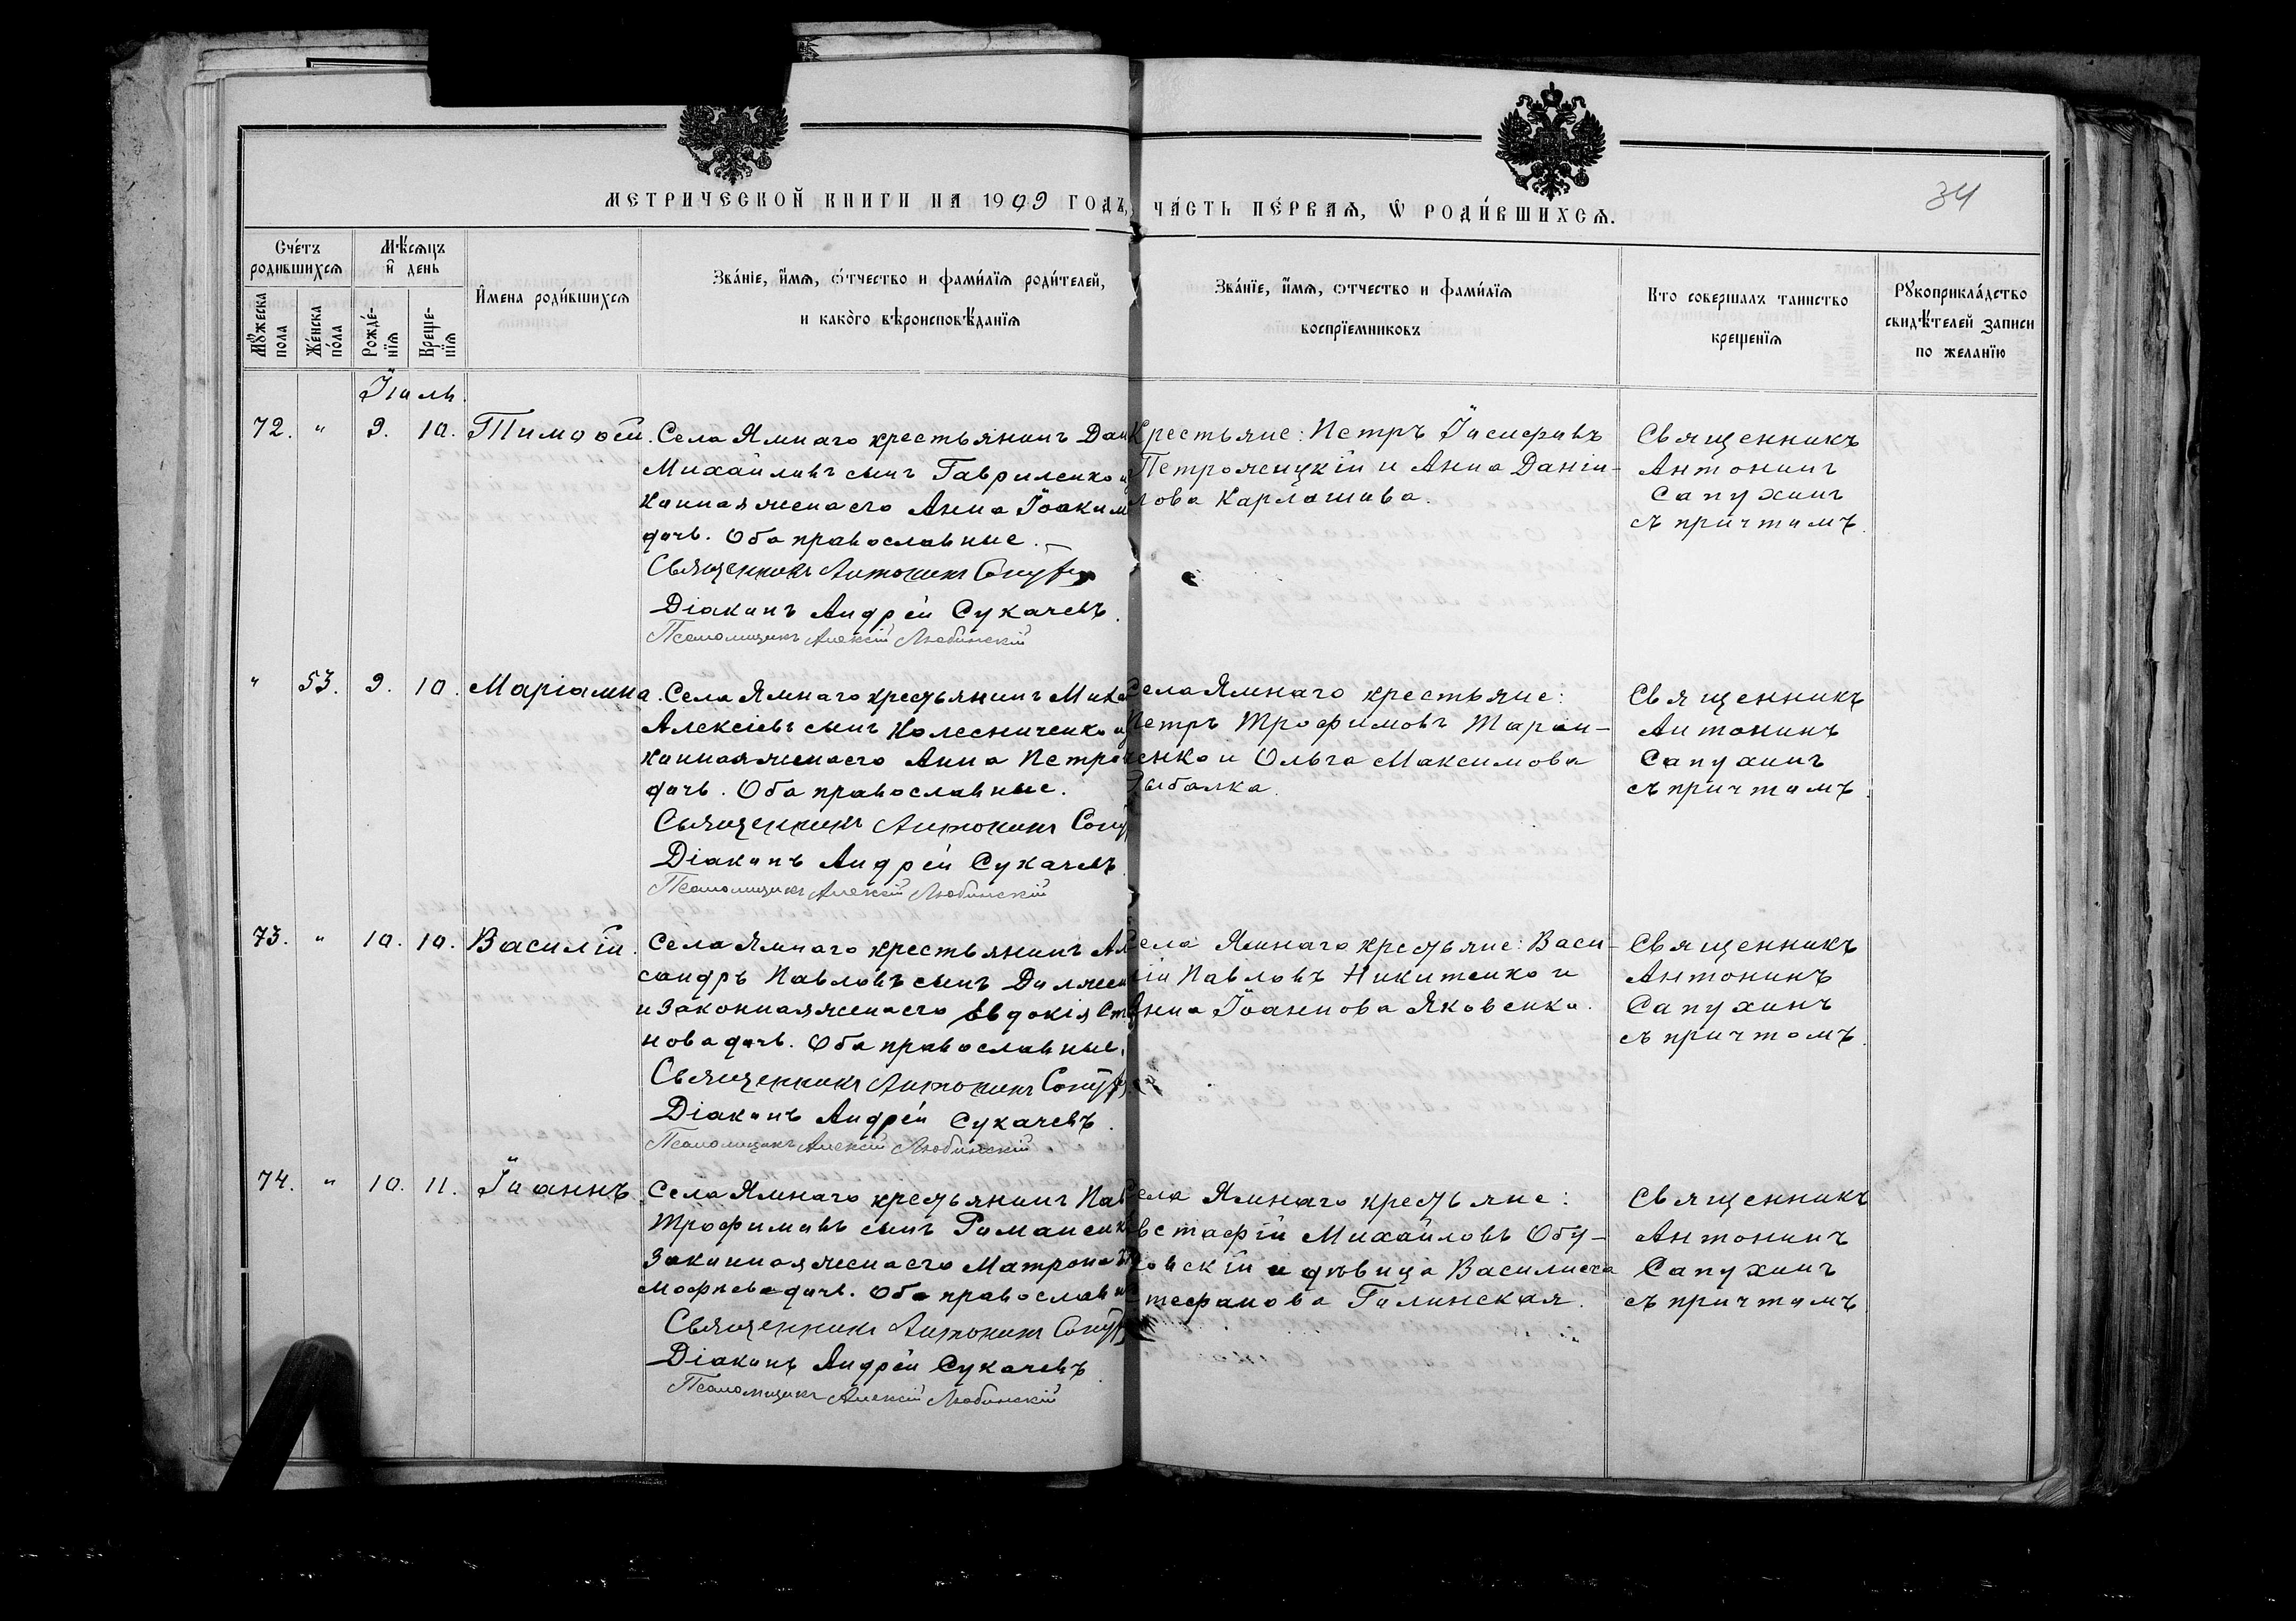 МЕТРИЧЕСКОЙ КНИГИ НА 1909 ГОДЪ, ЧА́СТЬ ПЕ́РВАѦ, Ѿ РОДИ́ВШИХСѦ.
34
Сче́тъ родившихсѧ
Мѣсѧцъ и҆ день
И҆мена роди́вшихсѧ
Зва́нїе, и҆́мѧ, ѻ҆́тчество и фами́лїѧ роди́телей,
и како́гѡ вѣроисповѣ́данїѧ
Зва́нїе, и҆́мѧ, ѻтчество и фами́лїѧ
воспрїемниковъ
Кто совершалъ таинство
крещенїѧ
Рꙋкоприкла́дство
свидѣ́телей записи
по желанїю
Мꙋ́жеска пола
Же́нска по́ла
Рожде́нїѧ
Креще-нїѧ
Іюль.
72. " 9. 10. Тимоѳей. Села Ямнаго крестьянинъ
Михайловъ сынъ Гавриленко и
конная жена его Анна Іоаким
дочь. Оба православные.
Священникъ Антонинъ
Діаконъ Андрей Сукачевъ.
Псаломщикъ Алексій Любинскій
Крестьяне: Петръ Іосифовъ
Петроженцкій и Анна Даніи-
лова Карлашова.
Священникъ
Антонинъ
Сапухинъ
съ причтомъ.
" 53. 9. 10. Маріамна. Села Ямнаго крестьянинъ
Алексіевъ сынъ Колесниченко и
конная жена его Анна Петро
дочь. Оба православные.
Священникъ Антонинъ
Діаконъ Андрей Сукачевъ.
Псаломщикъ Алексій Любинскій
Села Ямнаго крестьяне:
Петръ Трофимовъ Таран-
енко и Ольга Максимова
Рыбалка.
Священникъ
Антонинъ
Сапухинъ
съ причтомъ.
73. " 10. 10. Василій. Села Ямнаго крестьянинъ
сандръ Павловъ сынъ
и законная жена его Евдокія
нова дочь. Оба православные.
Священникъ Антонинъ
Діаконъ Андрей Сукачевъ.
Псаломщикъ Алексій Любинскій
Села Ямнаго крестьяне: Васи-
лій Павловъ Никитенко и
Анна Іоаннова Яковенко.
Священникъ
Антонинъ
Сапухинъ
съ причтомъ.
74. " 10. 11. Іоаннъ. Села Ямнаго крестьянинъ
Трофимовъ сынъ Романенко
законная жена его Матрона
моѳеева дочь. Оба православн
Священникъ Антонинъ
Діаконъ Андрей Сукачевъ.
Псаломщикъ Алексій Любинскій
Села Ямнаго крестьяне:
Евстафій Михайловъ Обу-
ховскій и дѣвица Василиса
Стефанова Галинская.
Священникъ
Антонинъ
Сапухинъ
съ причтомъ